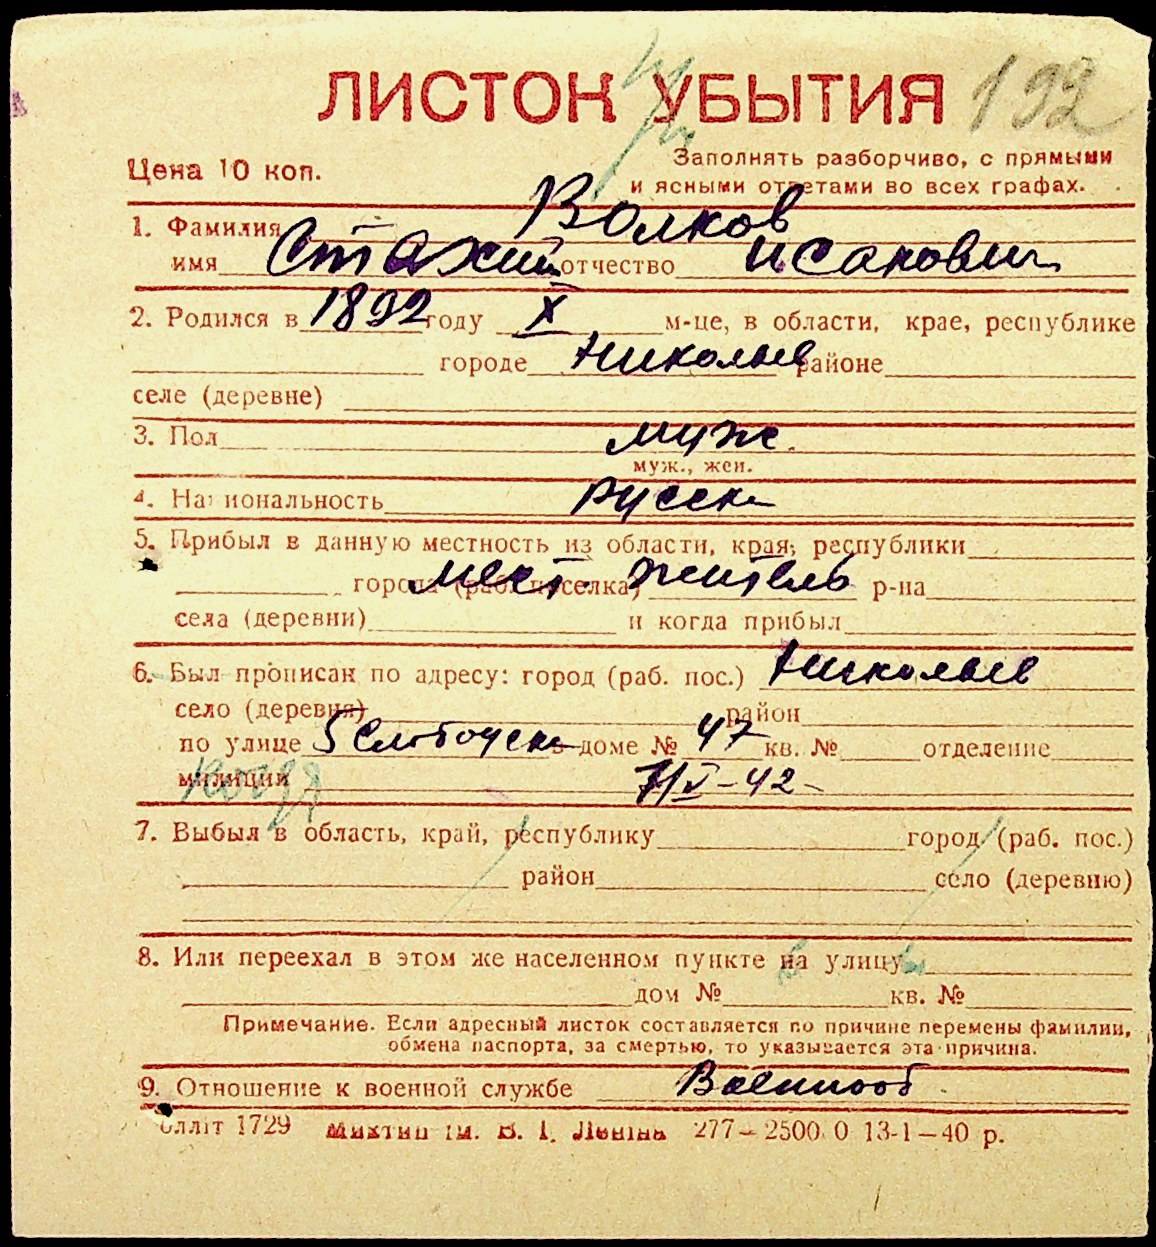 ЛИСТОК УБЫТИЯ 192
Цена 10 коп.
Заполнять разборчиво, с прямыми
и ясными ответами во всех графах.
1. Фамилия Волков
имя Стахий отчество Исакович
2. Родился в 1892 году X м-це, в области, крае, республике
городе Николаев районе
селе (деревне)
3. Пол муж.
муж., жен.
4. Национальность русск
5. Прибыл в данную местность из области, края, республики
города (раб. поселка) мест. житель р-на
села (деревни) и когда прибыл
6. Был прописан по адресу: город (раб. пос.) Николаев
село (деревня) район
по улице 5 Слободск в доме № 47 кв. № отделение
милиции 7/V-42
7. Выбыл в область, край, республику город (раб. пос.)
район село (деревню)
8. Или переехал в этом же населенном пункте на улицу
дом № кв. №
Примечание. Если адресный листок составляется по причине перемены фамилии,
обмена паспорта, за смертью, то указывается эта причина.
9. Отношение к военной службе Военнооб
блліт 1729 ім. В. І. Леніна 277—2500 0 13-1—40 р.